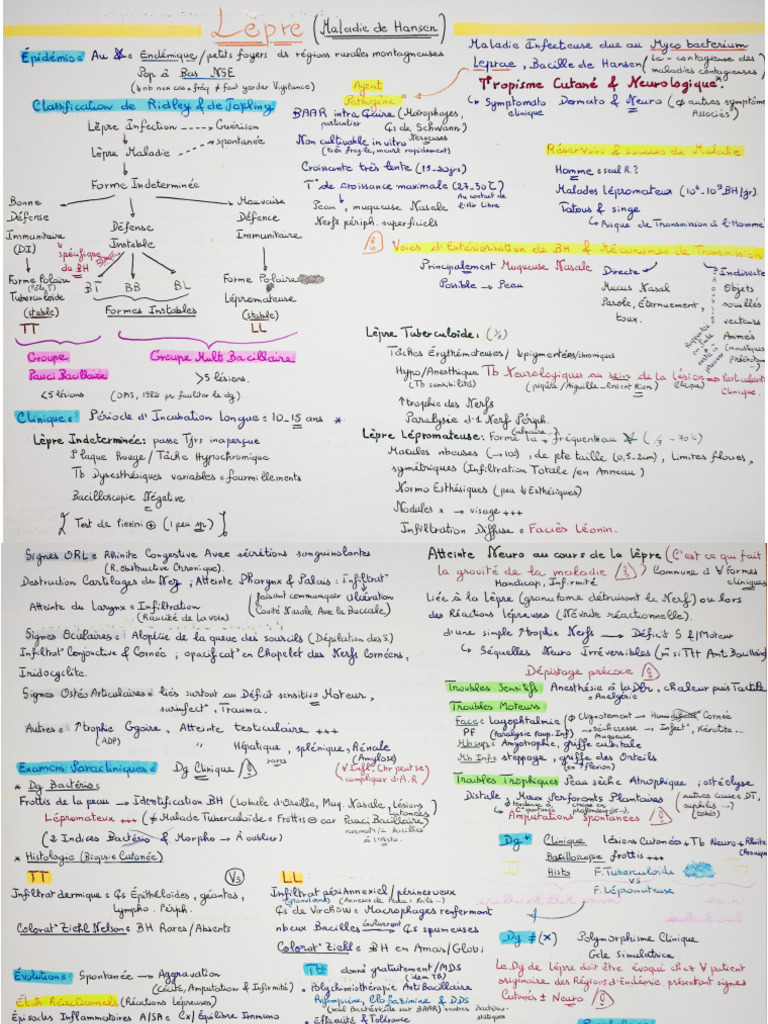 Lèpre (Maladie de Hansen)
Épidémio : Au : Endémique / petits foyers ds régions rurales montagneuses
Pop à Bas NSE
(↓ nb nux cas ≠ fréq ≠ faut garder Vigilance)
Classification de Ridley & de Jopling
Lèpre Infection ----→ Guérison
spontanée
Lèpre Maladie
Forme Indeterminée
Bonne
Défense
Immunitaire
(DI)
spécifique
du BH
Défense
Instable
Mauvaise
Défence
Immunitaire
Forme Polaire
Tuberculoïde
(stable)
TT
BT BB BL
Formes Instables
Forme Polaire
Lépromateuse
(stable)
LL
Groupe
Pauci Bacillaire
<5 lésions
Groupe Multi Bacillaire
>5 lésions.
(OMS, 1982 pr faciliter le dg)
Clinique : Période d'Incubation Longue : 10-15 ans *.
Lèpre Indeterminée : passe Tjrs inaperçue
Plaque Rouge / Tâche Hypochromique
Tb Dysesthésiques variables = fourmillements
Bacilloscopie Négative
Maladie Infectieuse due au Mycobacterium
Leprae, Bacille de Hansen (la - contagieuse des
maladies contagieuses)
Tropisme Cutané & Neurologique.
↳ Symptomato Dermato & Neuro (∅ autres symptôme
clinique Associés)
Agent
Pathogène
BAAR intra Gaire (Macrophages,
particulier Gs de Schwann)
Non cultivable in vitro
(très fragile, meurt rapidement)
Croissante très lente (15-20jrs)
T° de croissance maximale (27-30°C)
Au contact de
l'Air Libre
Peau, muqueuse Nasale
Nerfs périph. superficiels
Réservoirs & sources de Maladie
Homme = seul R.?
Malades lépromateux
Tatous & singe
↳ Risque de Transmission à l'Homme
Voies d'Extériorisation de BH & Mécanismes de Transmission
Principalement Muqueuse Nasale
Possible → Peau
Directe
Mucus Nasal
Parole, Éternuement,
toux.
Indirecte
Objets
souillés
vecteurs
Animés
Lèpre Tuberculoïde :
Tâches Érythémateuses / ↓pigmentées/chromiques
Hypo/Anesthique Tb Neurologiques au sein de la lésion ⇒ Particularité
(Tb sensibilités) (piqûre/Aiguille → Ressent Rien) Clinique.
↑trophie des Nerfs
Paralysie d'1 Nerf Périph.
Lèpre Lépromateuse : Forme la + fréquente au
Macules nbeuses, de pte taille (0,5-2cm), Limites floues,
symétriques (Infiltration Totale / en Anneau)
Normo Esthésiques (peu ↓ Esthésiques)
Nodules * → visage +++
Infiltration Diffuse = Faciès Léonin.
Signes ORL : Rhinite Congestive Avec sécrétions sanguinolantes
(R. Obstructive Chronique).
Destruction Cartilages du Nez ; Atteinte Pharynx & Palais : Infiltrat°
Ulcération
faisant communiquer
Cavité Nasale Avec la Buccale
Atteinte du Larynx = Infiltration
(Raucité de la voix)
Signes Oculaires : Alopécie de la queue des sourcils (Dépilation des S.)
Infiltrat° Conjonctive & Cornée ; opacificat° en Chapelet des Nerfs Cornéens,
Iridocyclite.
Signes Ostéo Articulaires = liés surtout au Déficit sensitivo Moteur,
surinfect°, Trauma.
Autres : ↑trophie Ggaire, Atteinte testiculaire +++
(ADP)
" Hépatique, splénique, Rénale
rares (Amylose)
Examens Paracliniques : Dg Clinique
* Dg Bactério :
Frottis de la peau → Identification BH (Lobule d'Oreille, Muq. Nasale, lésions
cutanées)
Lépromateux +++ (≠ Maladie Tuberculoïde = Frottis ⊖ car Pauci Bacillaire)
(2 Indices Bactério & Morpho → À oublier)
* Histologie (Biopsie Cutanée)
TT Vs LL
Infiltrat dermique = Gs Épithéloïdes, géantes,
Lympho. Périph.
Colorat° Ziehl Nelson = BH Rares / Absents
Infiltrat périAnnexiel / périnerveux
Gs de Virchow = Macrophages renfermant
nbeux Bacilles Gs spumeuses
Colorat° Ziehl = BH en Amas / Globi
Évolution : Spontanée → Aggravation
(Cécité, Amputation & Infirmité)
États Réactionnels (Réactions Lépreuses)
Épisodes Inflammatoires A/SA = Cx/Équilibre Immuno
Ttt donné gratuitement / MDS
(idem TB)
• Polychimiothérapie Anti Bacillaire
Rifampicine, Clofazimine & DDS
• Efficacité & Tolérance
Atteinte Neuro au cours de la lèpre (C'est ce qui fait
la gravité de la maladie) Commune à ∀ formes
Handicap, Infirmité cliniques
Liée à la Lèpre (granulome détruisant le Nerf) ou lors
des Réactions lépreuses (Névrite réactionnelle).
d'une simple ↑trophie Nerfs → Déficit S & Moteur
↳ Séquelles Neuro Irréversibles (m̂ si Ttt Anti Bacillaire)
Dépistage précoce
Troubles Sensitifs Anesthésie à la Dlr, chaleur puis Tactile
= Analgésie
Troubles Moteurs
Face : Lagophtalmie
PF
Mb sup : Amyotrophie, griffe cubitale
Mb Inf : steppage, griffe des Orteils
(en flexion)
Troubles Trophiques Peau sèche Atrophique ; ostéolyse
Distale. Maux Perforants Plantaires
Amputations spontanées
Dg + Clinique lésions Cutanées + Tb Neuro + Rhinite
Chronique
Bacilloscopie frottis +++
Histo F. Tuberculoïde
vs
F. Lépromateuse
Dg ≠ (x) Polymorphisme Clinique
Gde simulatrice
Le Dg de Lèpre doit être évoqué chez ∀ patient
originaire des Régions d'Endémie présentant signes
Cutanés ± Neuro